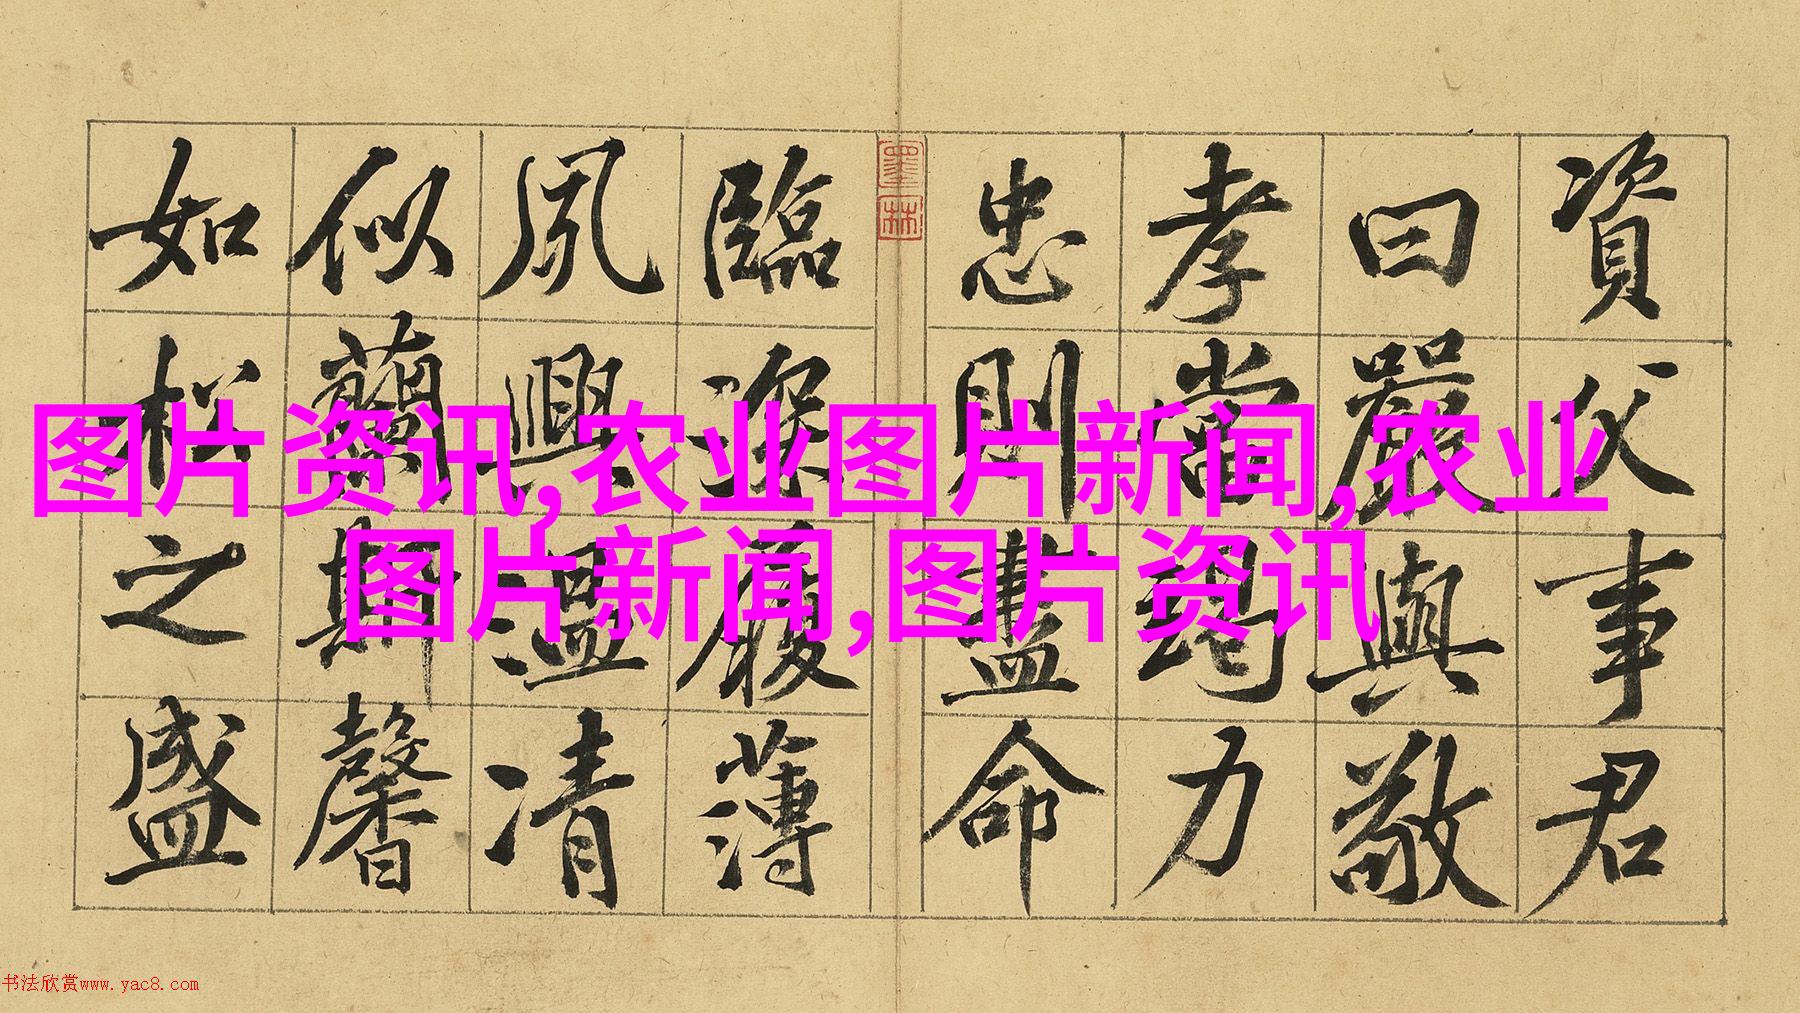 資父事君
曰嚴與敬
孝當竭力
忠則盡命
臨深履薄
夙興温凊
似蘭斯馨
如松之盛
墨林
图片资讯,农业图片新闻,农业
图片新闻,图片资讯
书法欣赏www.yac8.com